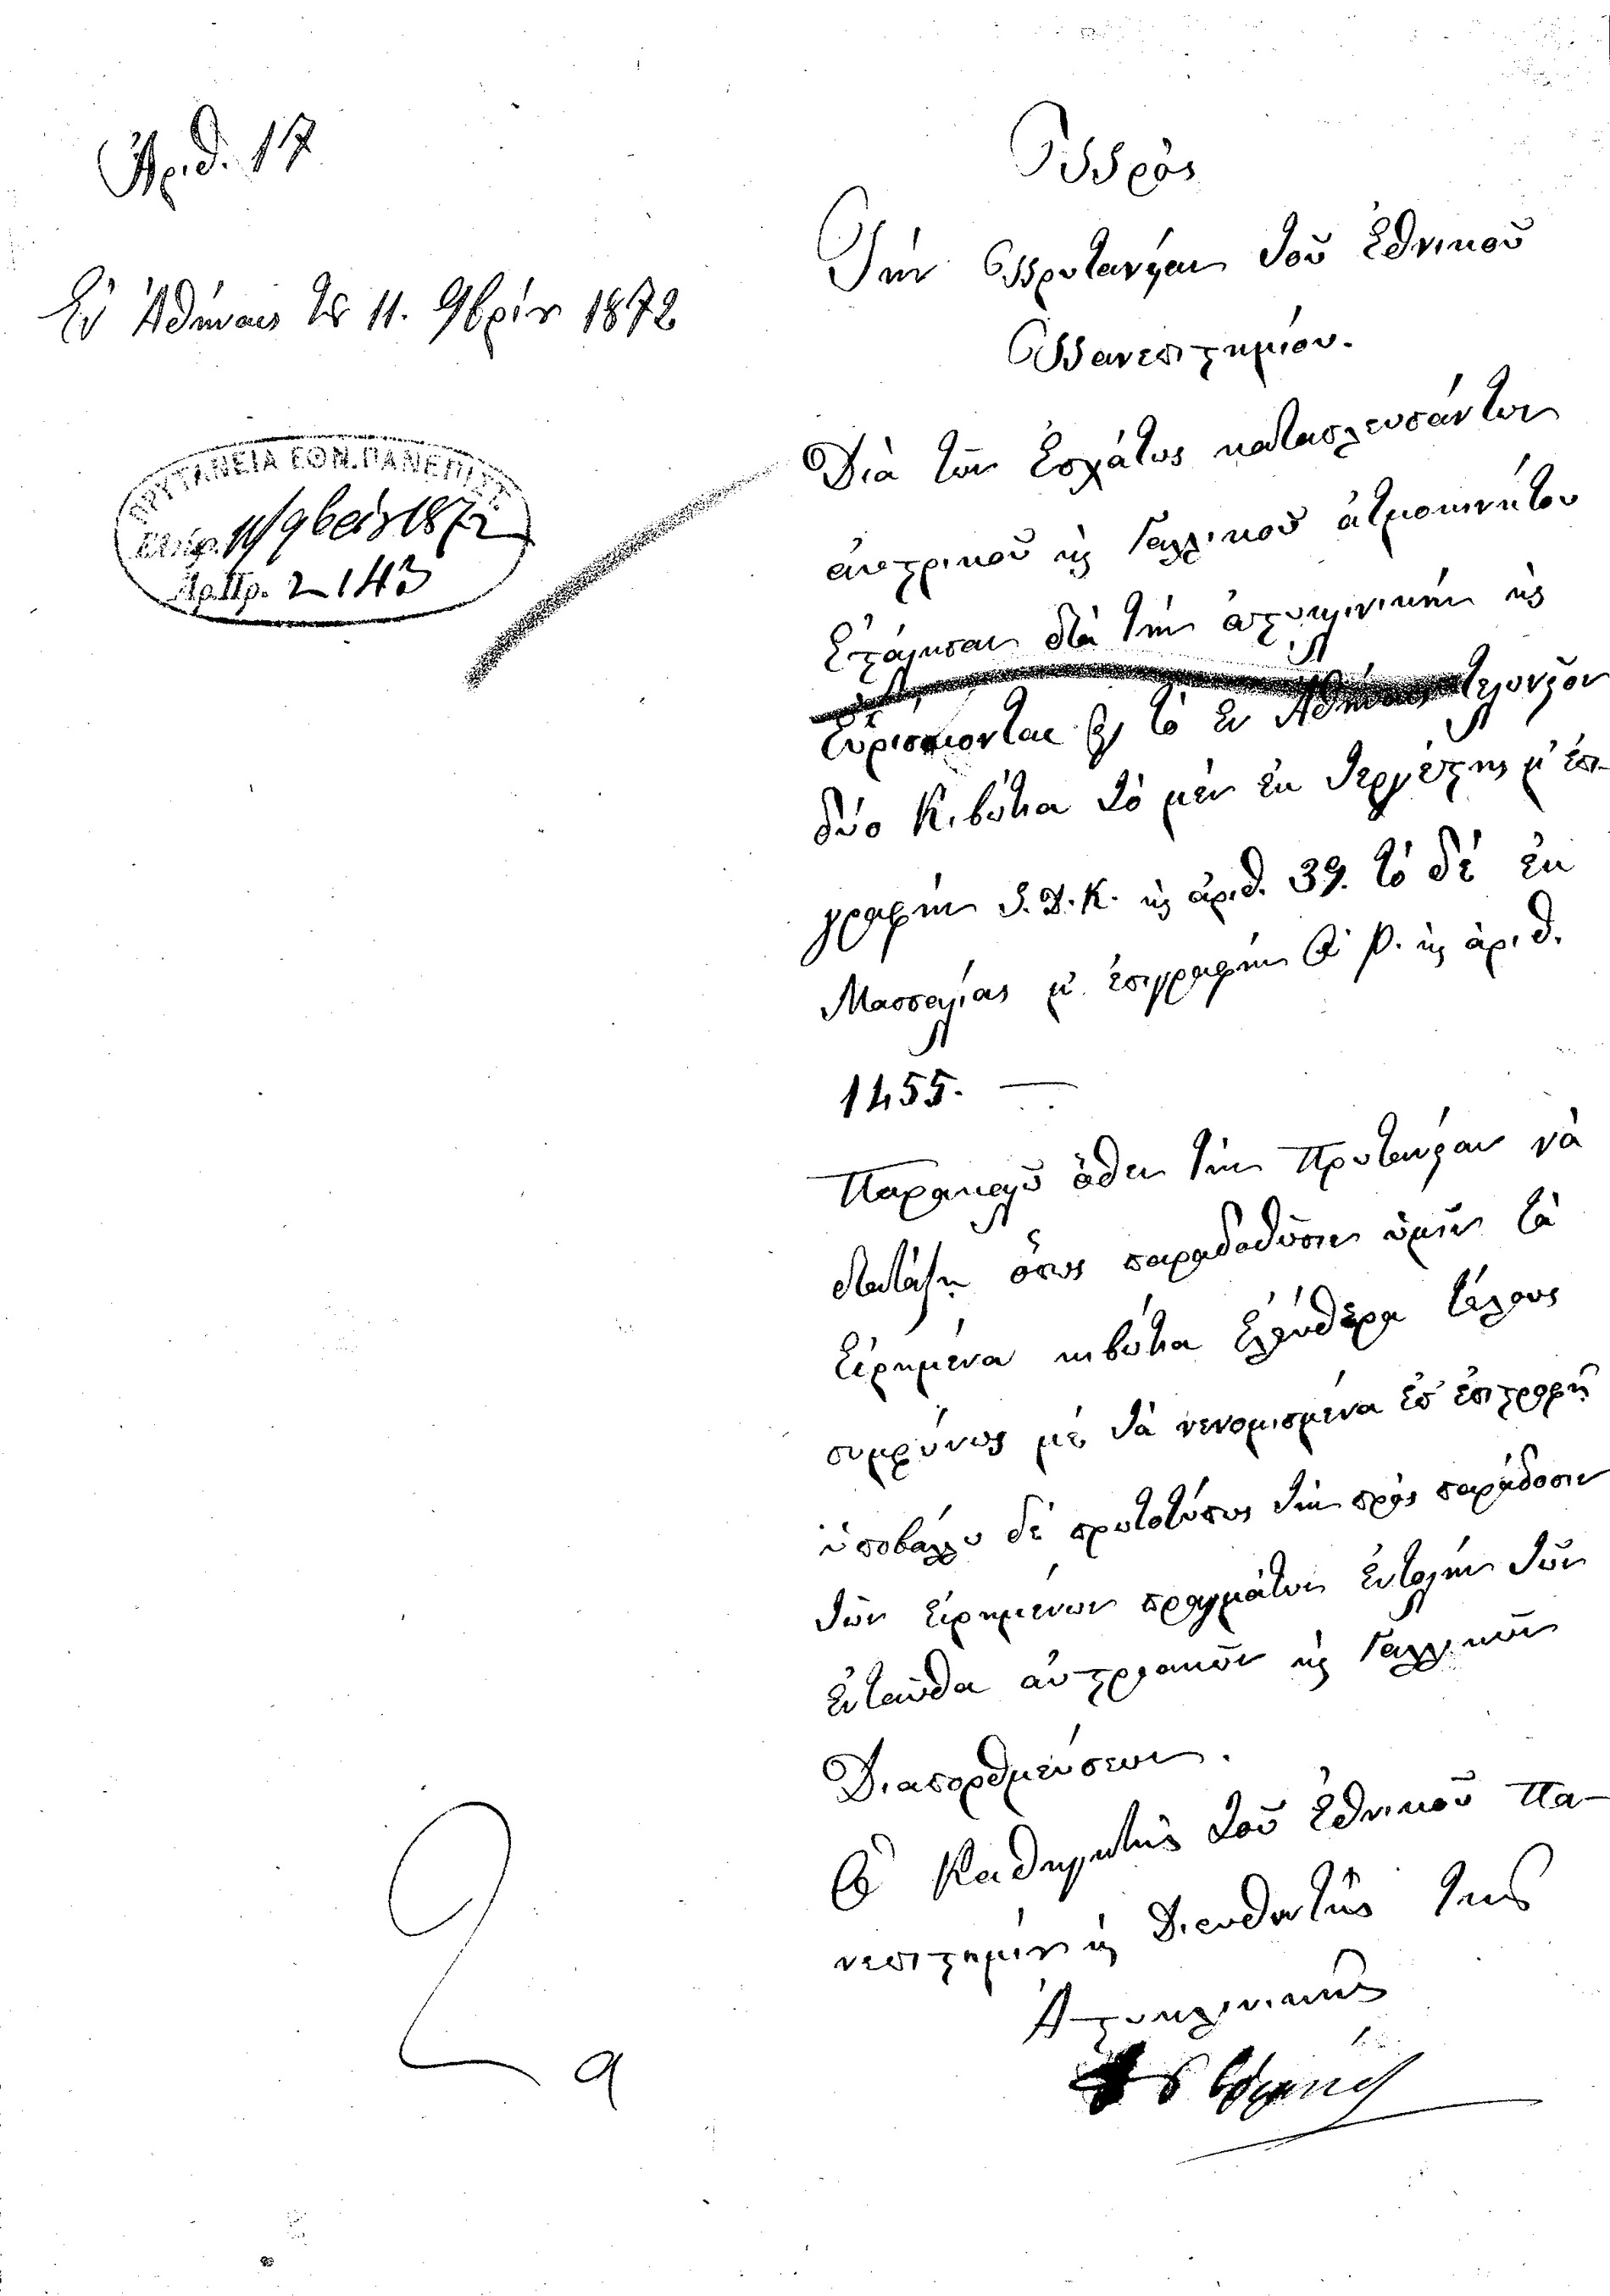 Ἀριθ. 17
Ἐν Ἀθήναις τῇ 11. 9βρίου 1872
ΠΡΥΤΑΝΕΙΑ ΕΘΝ. ΠΑΝΕΠΙΣΤ.
11/9βρίου 1872
Ἀρ. Πρ. 2143
Πρὸς
Τὴν Πρυτανείαν τοῦ Ἐθνικοῦ
Πανεπιστημίου.
Διὰ τῶν ἐσχάτως καταπλευσάντων
αὐστρικοῦ καὶ Γαλλικοῦ ἀτμοκινήτου
ἐστάλησαν διὰ τὴν ἀστυκλινικὴν καὶ
εὑρίσκονται εἰς τὸ ἐν Ἀθήναις τελωνεῖον
δύο Κιβώτια τὸ μὲν ἐκ Τεργέστης μ' ἐπι-
γραφὴν Δ. Κ. καὶ ἀριθ. 39. τὸ δὲ ἐκ
Μασσαλίας μ' ἐπιγραφὴν Ρ. καὶ ἀριθ.
1455. —
Παρακαλῶ ὅθεν τὴν Πρυτανείαν νὰ
διατάξῃ ὅπως παραδοθῶσιν ἡμῖν τὰ
εἰρημένα κιβώτια ἐλεύθερα τέλους
συμφώνως μὲ τὰ νενομισμένα ἐπ' ἐπιστροφῇ
ὑποβάλλω δὲ πρωτοτύπως τὴν πρὸς παράδοσιν
τῶν εἰρημένων πραγμάτων ἐντολὴν τῶν
ἐνταῦθα αὐστριακῶν καὶ Γαλλικῶν
Διαπορθμεύσεων.
Ὁ Καθηγητὴς τοῦ Ἐθνικοῦ Πα-
νεπιστημίου καὶ Διευθυντὴς τῆς
Ἀστυκλινικῆς